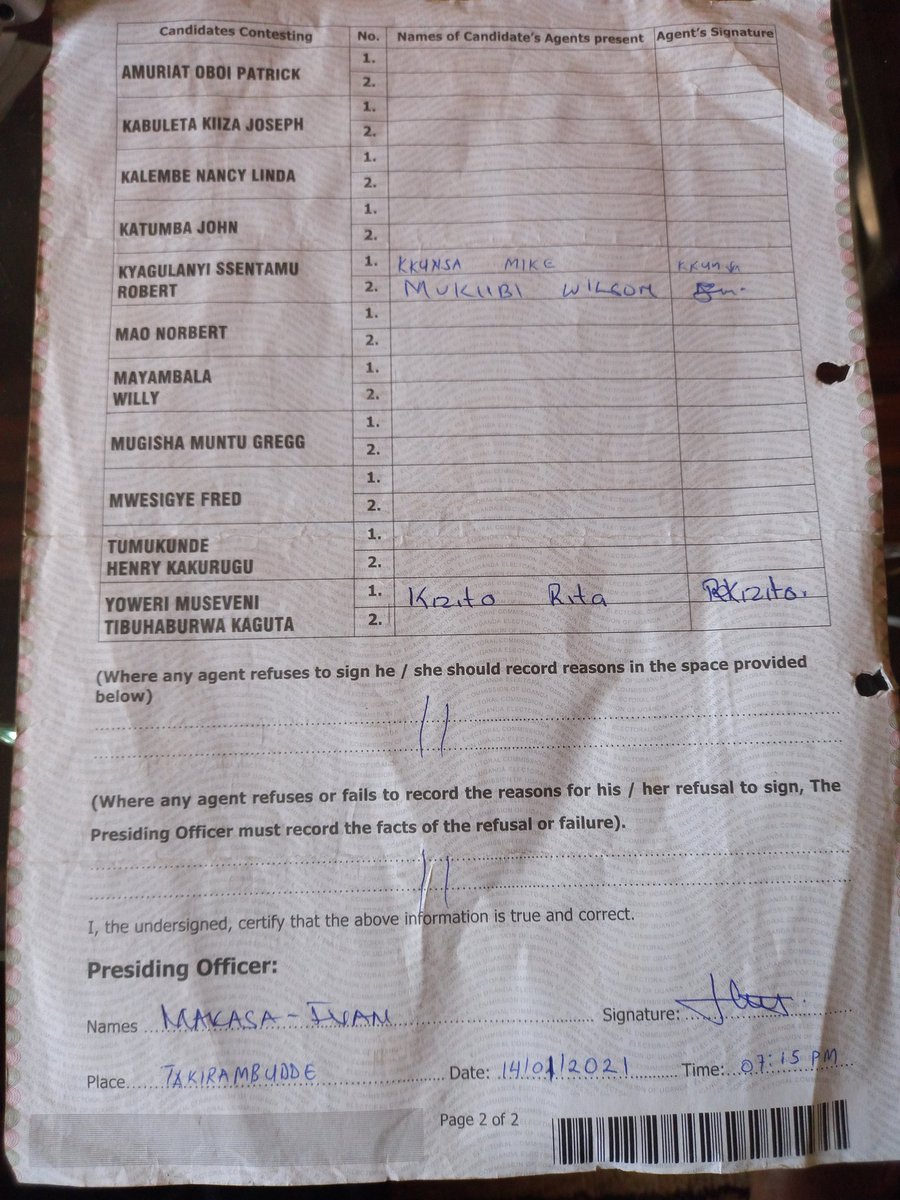 Candidates Contesting No. Names of Candidate's Agents present Agent's Signature
AMURIAT OBOI PATRICK 1.
2.
KABULETA KIIZA JOSEPH 1.
2.
KALEMBE NANCY LINDA 1.
2.
KATUMBA JOHN 1.
2.
KYAGULANYI SSENTAMU 1. KKUNSA MIKE KKUNSA
ROBERT 2. MUKIIBI WILSON
MAO NORBERT 1.
2.
MAYAMBALA 1.
WILLY 2.
MUGISHA MUNTU GREGG 1.
2.
MWESIGYE FRED 1.
2.
TUMUKUNDE 1.
HENRY KAKURUGU 2.
YOWERI MUSEVENI 1. Kizito Rita RKizito.
TIBUHABURWA KAGUTA 2.
(Where any agent refuses to sign he / she should record reasons in the space provided
below)
(Where any agent refuses or fails to record the reasons for his / her refusal to sign, The
Presiding Officer must record the facts of the refusal or failure).
I, the undersigned, certify that the above information is true and correct.
Presiding Officer:
Names MAKASA - IVAN Signature:
Place TAKIRAMBUDDE Date: 14/01/2021 Time: 07:15 PM
Page 2 of 2